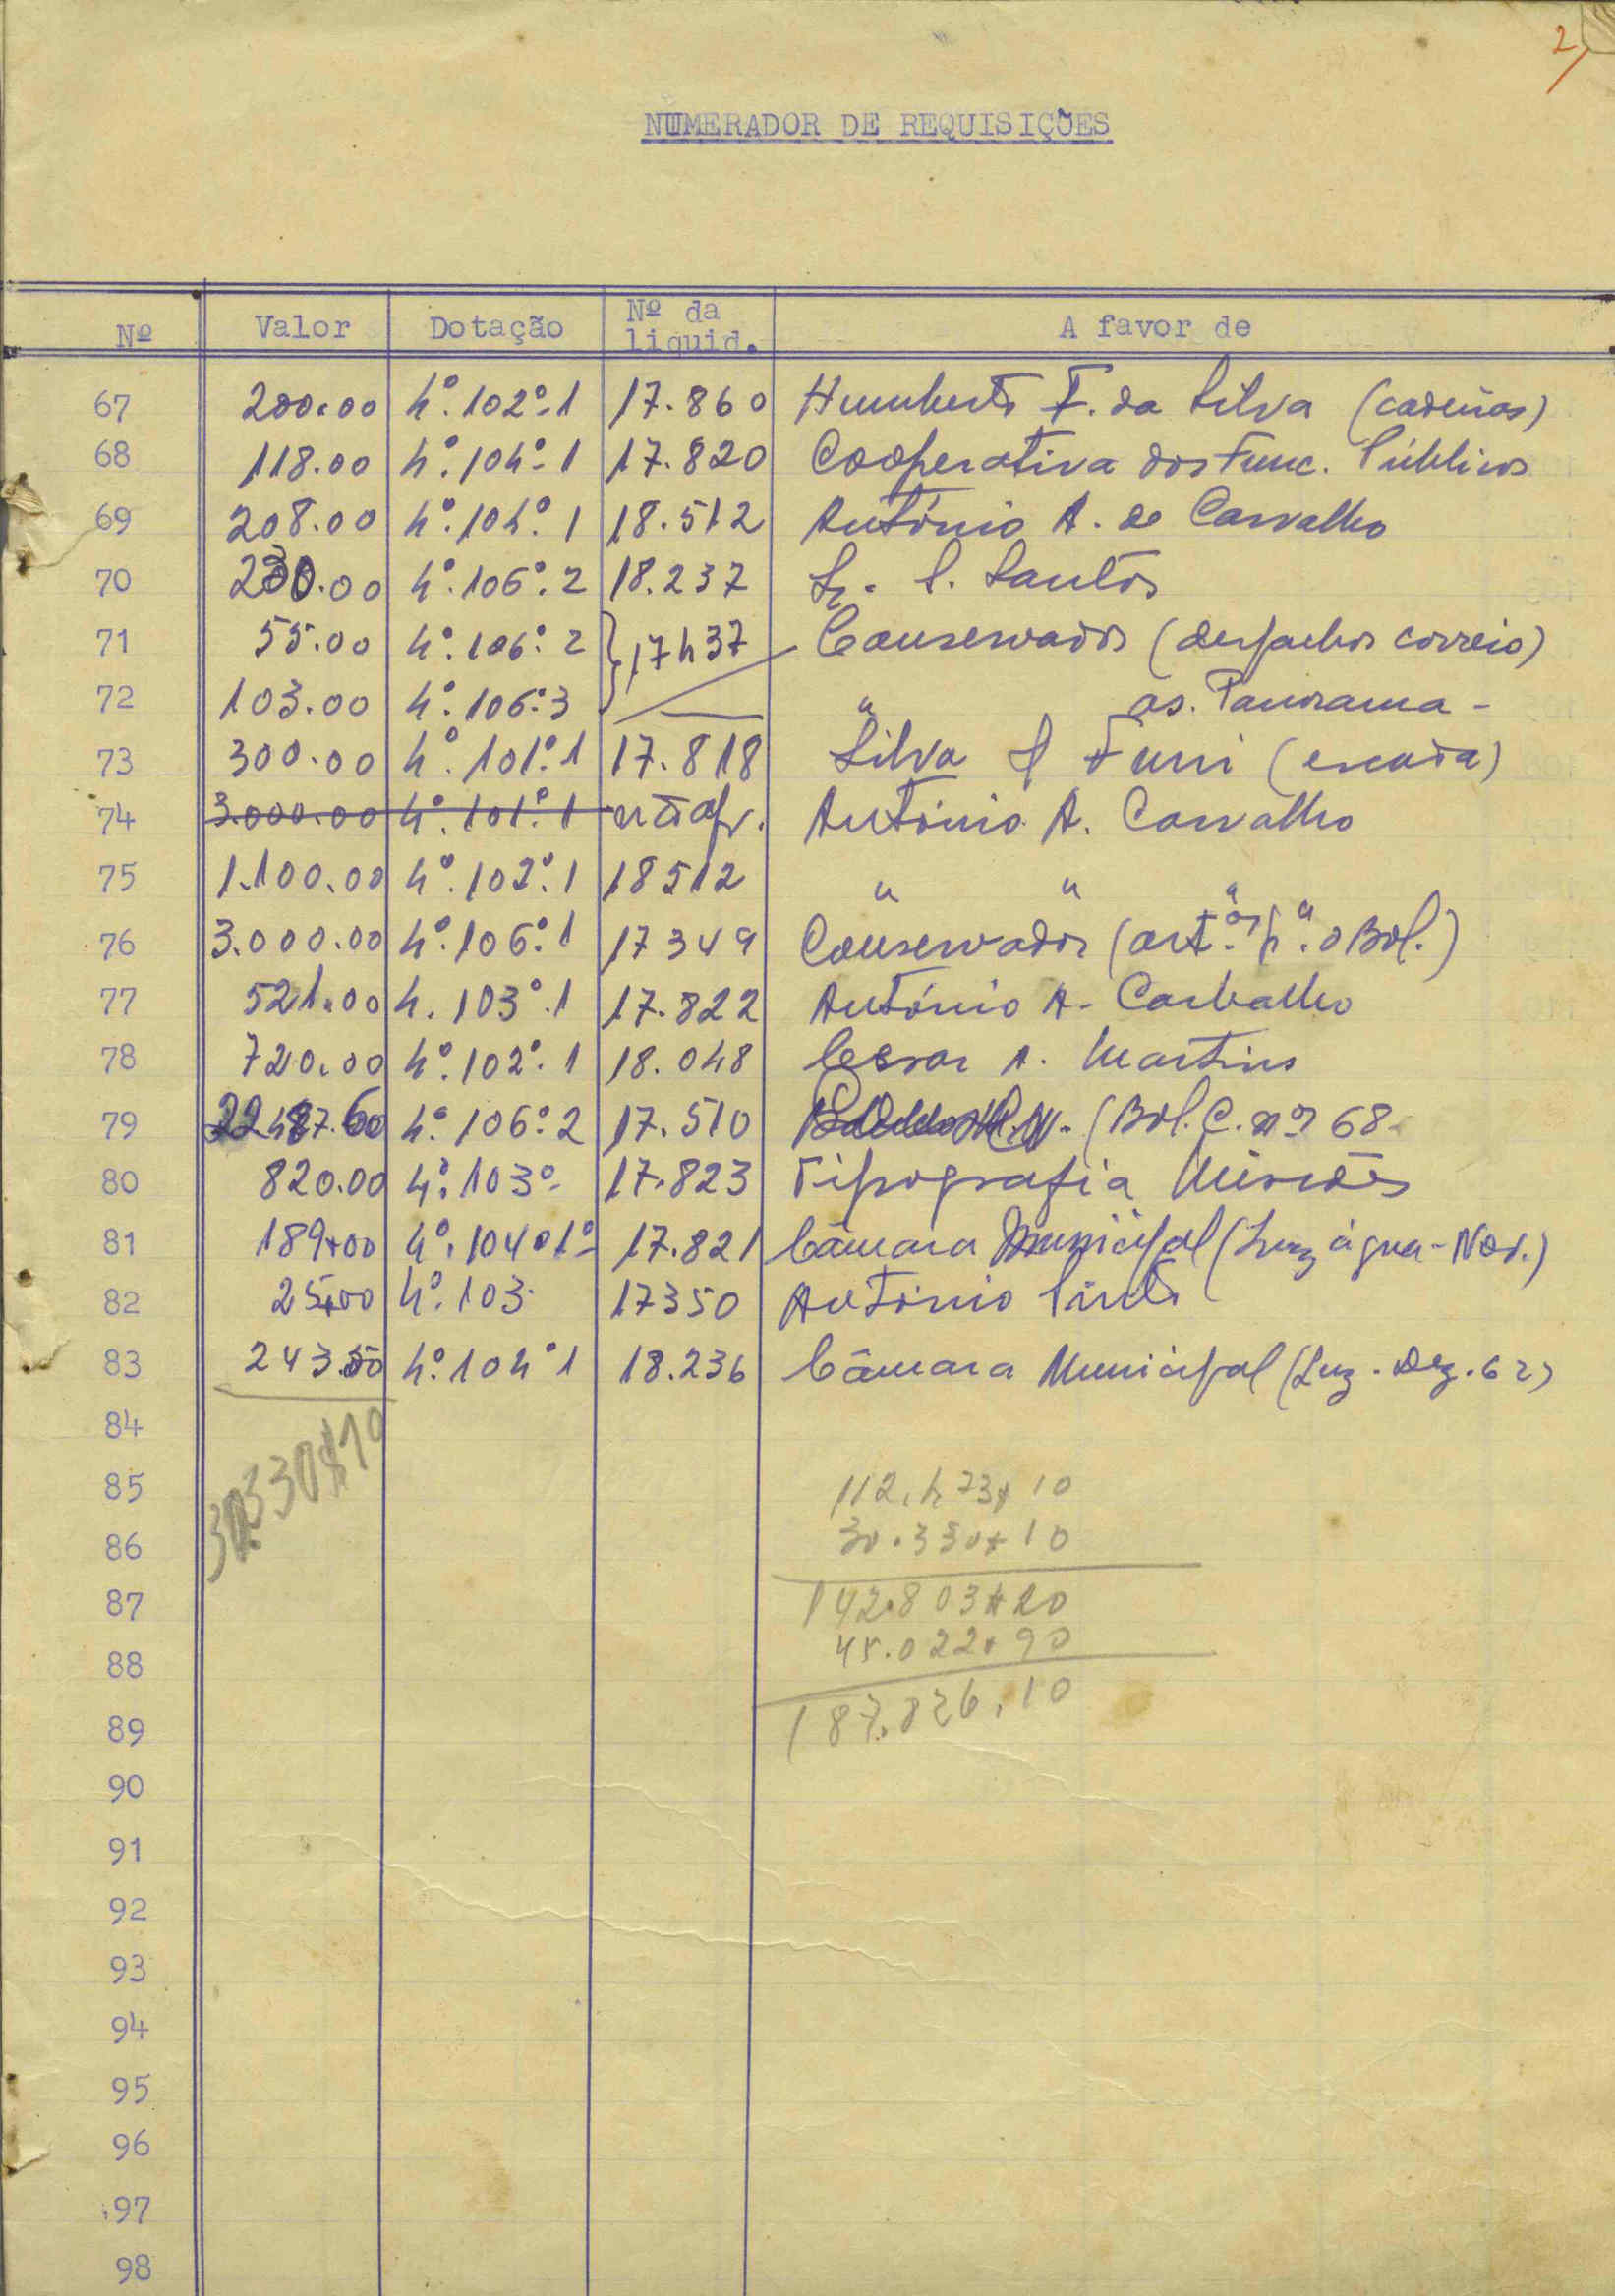 2
NUMERADOR DE REQUISIÇÕES
Nº Valor Dotação Nº da liquid. A favor de
67 200.00 4º.102º-1 17.860 Humberto F. da Silva (cadeiras)
68 118.00 4º.104º-1 17.820 Cooperativa dos Func. Públicos
69 208.00 4º.104º.1 18.512 António A. de Carvalho
70 230.00 4º.106º.2 18.237 S. Santos
71 55.00 4º.106º.2 17437 Conservador (despachos correio)
72 103.00 4º.106º.3 " as. Panorama -
73 300.00 4º.101º.1 17.818 Silva & (escada)
74 3.000.00 4º.101º.1 António A. Carvalho
75 1.100.00 4º.102º.1 18512 " " " "
76 3.000.00 4º.106º.1 17349 Conservador (artºs pª. o Bol.)
77 521.00 4.103º.1 17.822 António A. Carvalho
78 720.00 4º.102º.1 18.048 Cesar A. Martins
79 22487.60 4º.106º.2 17.510 (Bol. C. nº 68-
80 820.00 4º.103º- 17.823 Tipografia Minerva
81 189+00 4º.104º1º- 17.821 Câmara Municipal (Luz água - Nov.)
82 25+00 4º.103 17350 António Pinto
83 243.50 4º.104º1 18.236 Câmara Municipal (Luz. Dez. 62)
84
30.330$10
85 112.473$10
86 30.330$10
87 142.803$20
88 45.022$90
89 187.826.10
90
91
92
93
94
95
96
97
98